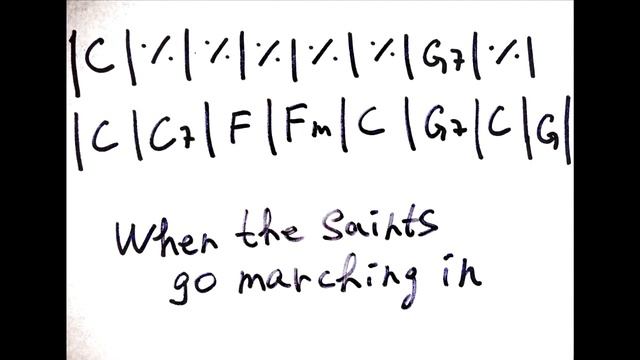 |C|٪|٪|٪|٪|٪|G7|٪|
|C|C7|F|Fm|C|G7|C|G|
When the Saints
go marching in